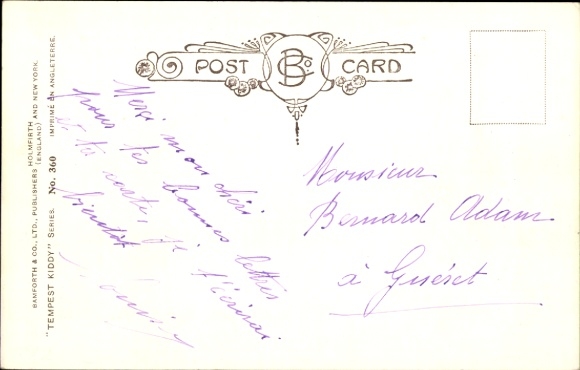 POST BCo CARD
BAMFORTH & CO., LTD., PUBLISHERS HOLMFIRTH (ENGLAND) AND NEW YORK.
"TEMPEST KIDDY" SERIES. No. 360 IMPRIMÉ EN ANGLETERRE.
Merci mon chéri
pour tes bonnes lettres
Monsieur
Bernard Adam
à Guéret